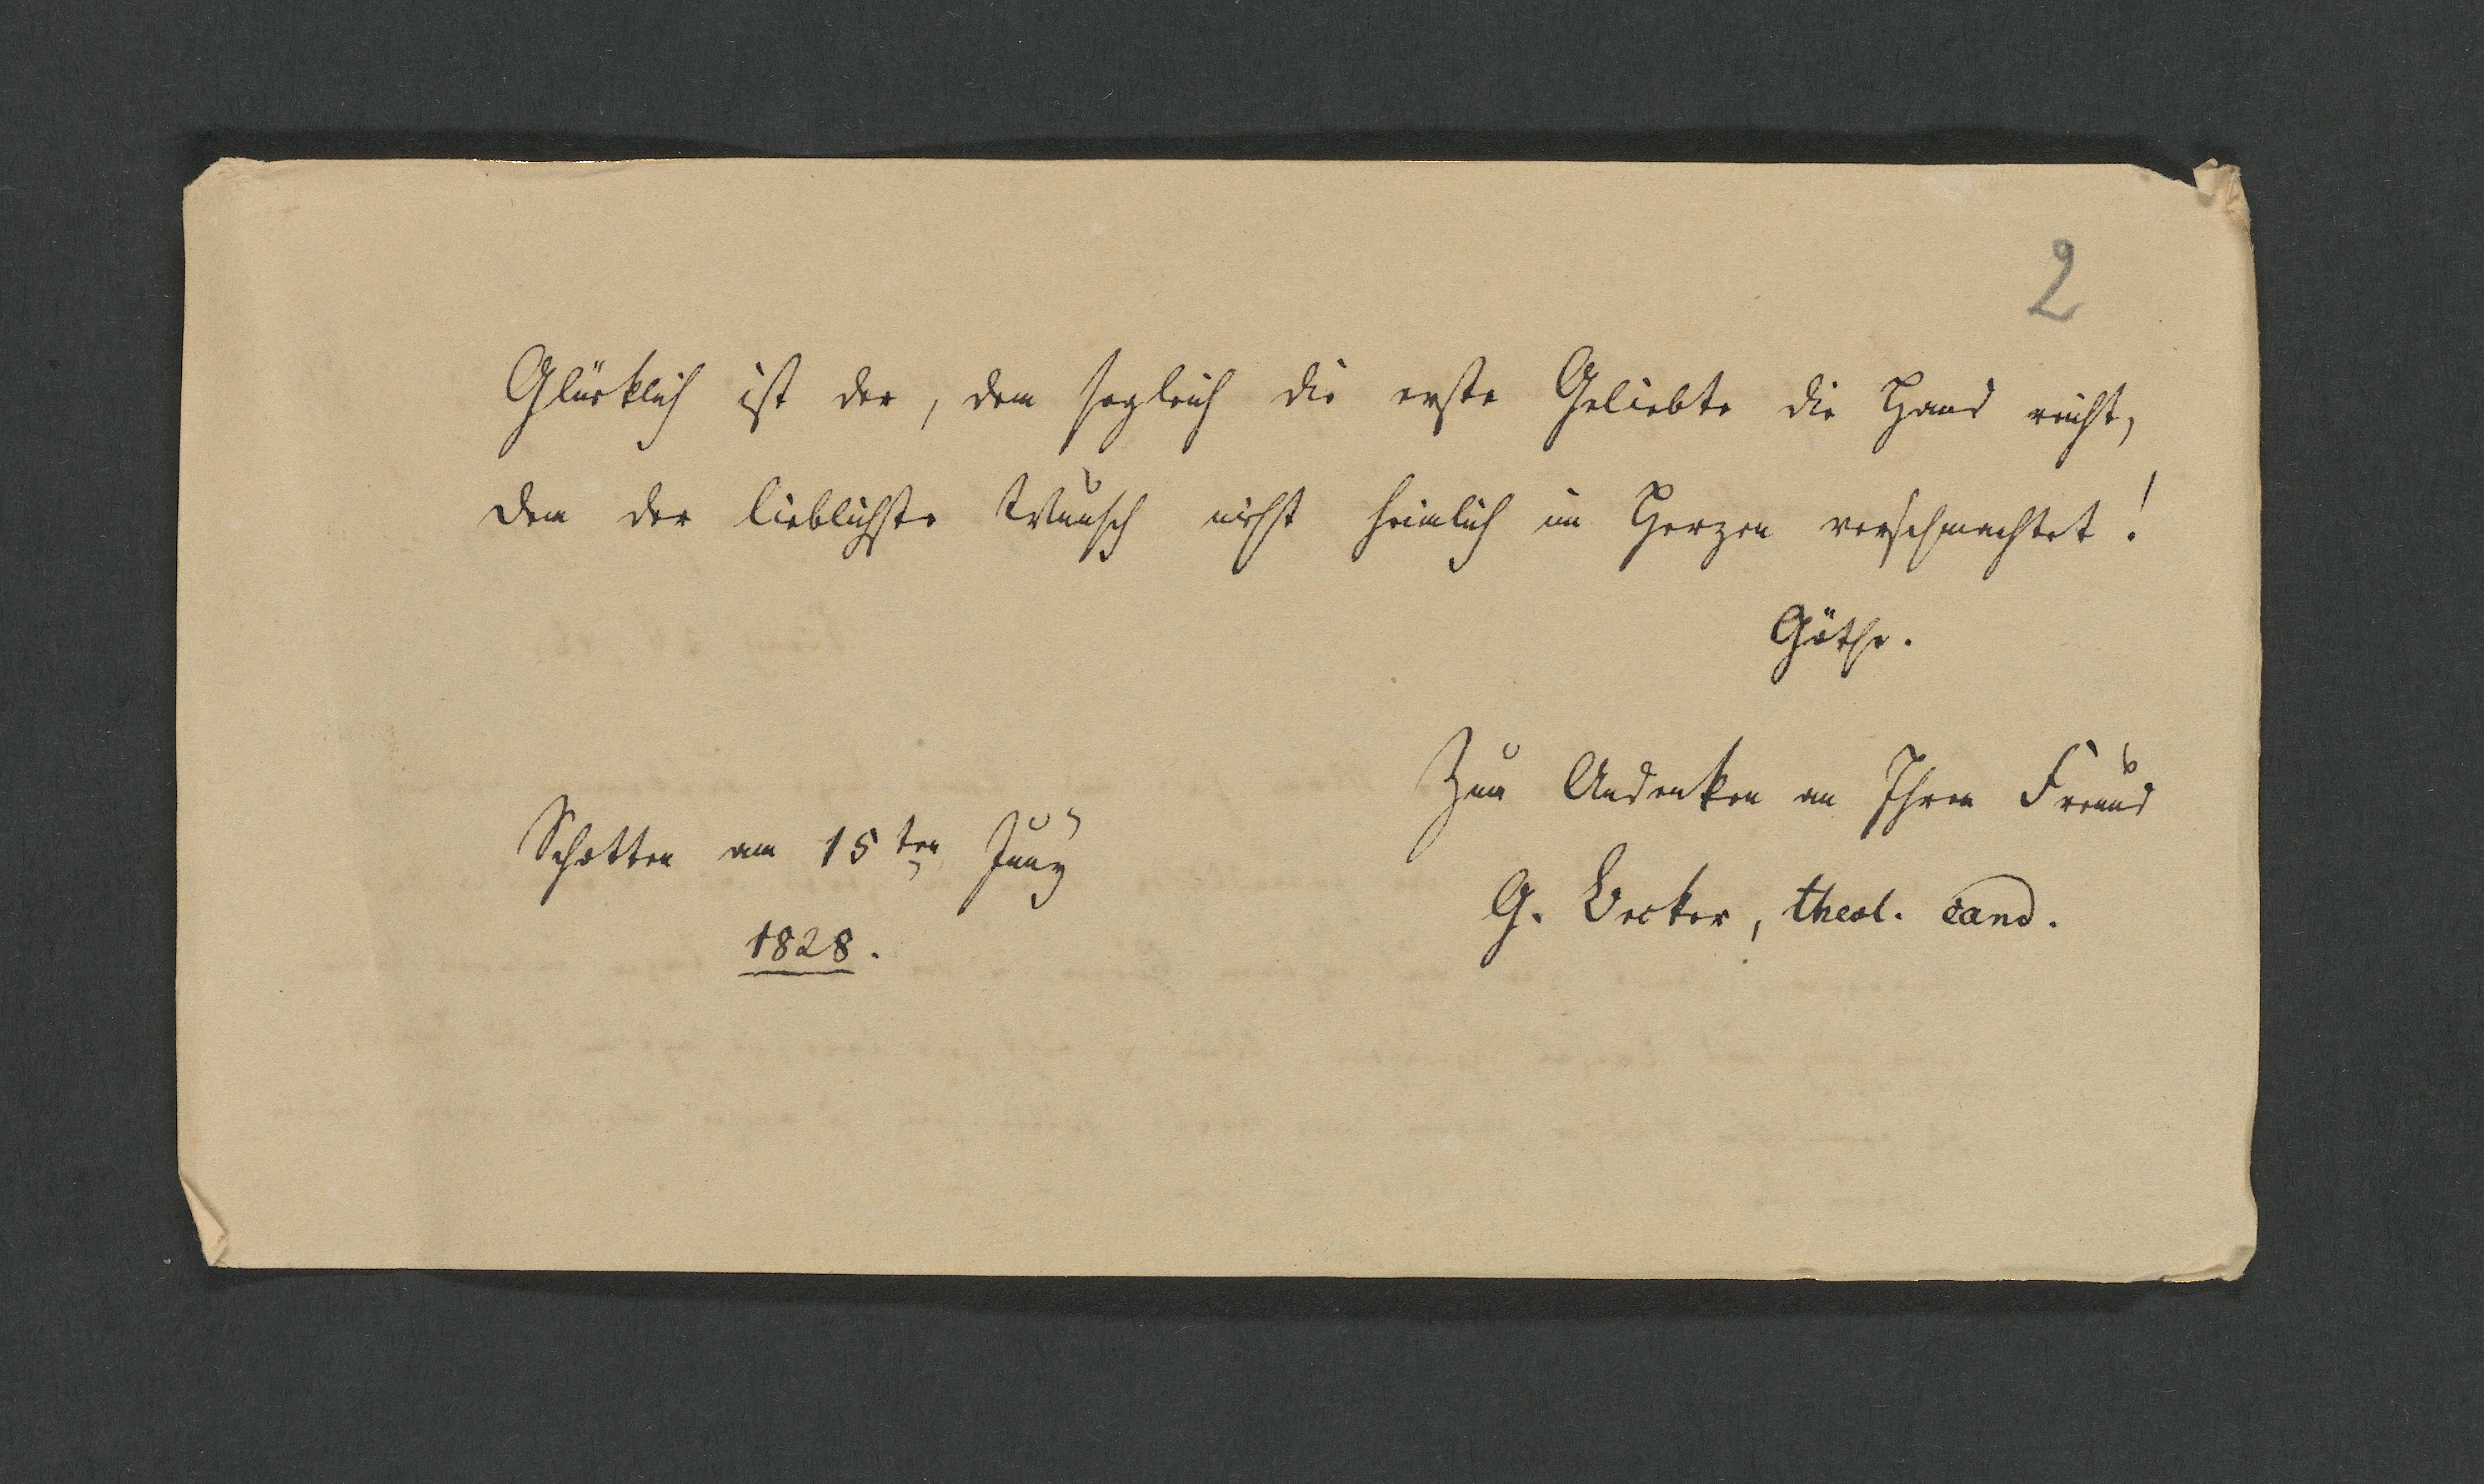 2
Glücklich ist der, dem sogleich die erste Geliebte die Hand reicht,
dem der lieblichste Wunsch nicht heimlich im Herzen verschmachtet!
Göthe.
Zum Andenken an Ihren Freund
Schotten am 15ten Juny
G. Becker, theol. cand.
1828.